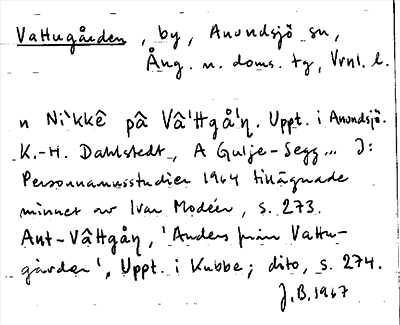 Vattugården, by, Anundsjö sn,
Ång. n. doms. tg, Vrnl. l.
n Ni`kkê på Vâ'ttgå'n. Uppt. i Anundsjö.
K.-H. Dahlstedt, A Gulje-Segg... I:
Personnamnsstudier 1964 tillägnade
minnet av Ivar Modéer, s. 273.
Ant-Vâttgån, 'Anders från Vattu-
gården', Uppt. i Kubbe; dito, s. 274.
J.B. 1967